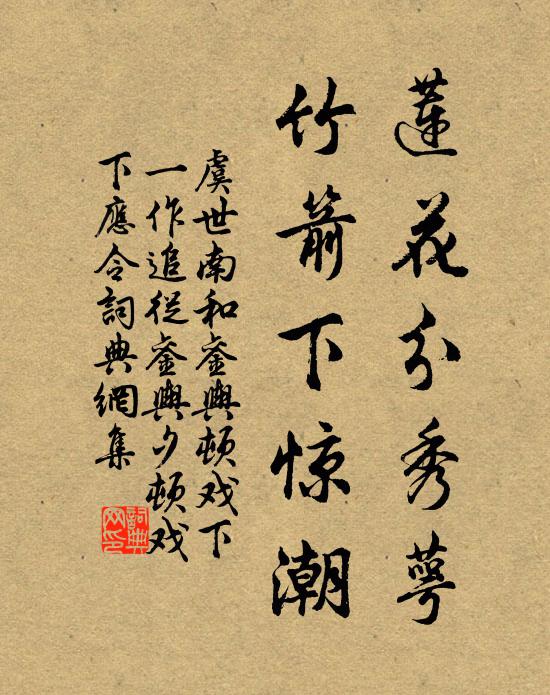 蓮花分秀萼
竹箭下惊潮
虞世南和銮輿頓戏下
一作追從銮輿夕頓戏
下應令詞典網集
詞典网印